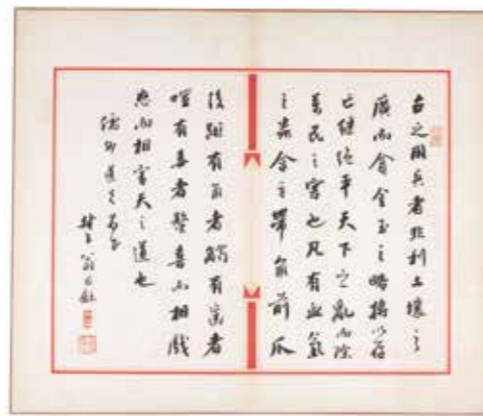 古之用兵者非利土壤之
廣而貪金玉之略將以存
亡繼絕平天下之亂而除
萬民之害也凡有血氣
之蟲含牙帶角前爪
後距有角者觸有齒者
噬有毒者螫喜而相戲
怒而相害天之道也
儒卿道兄
翁同龢